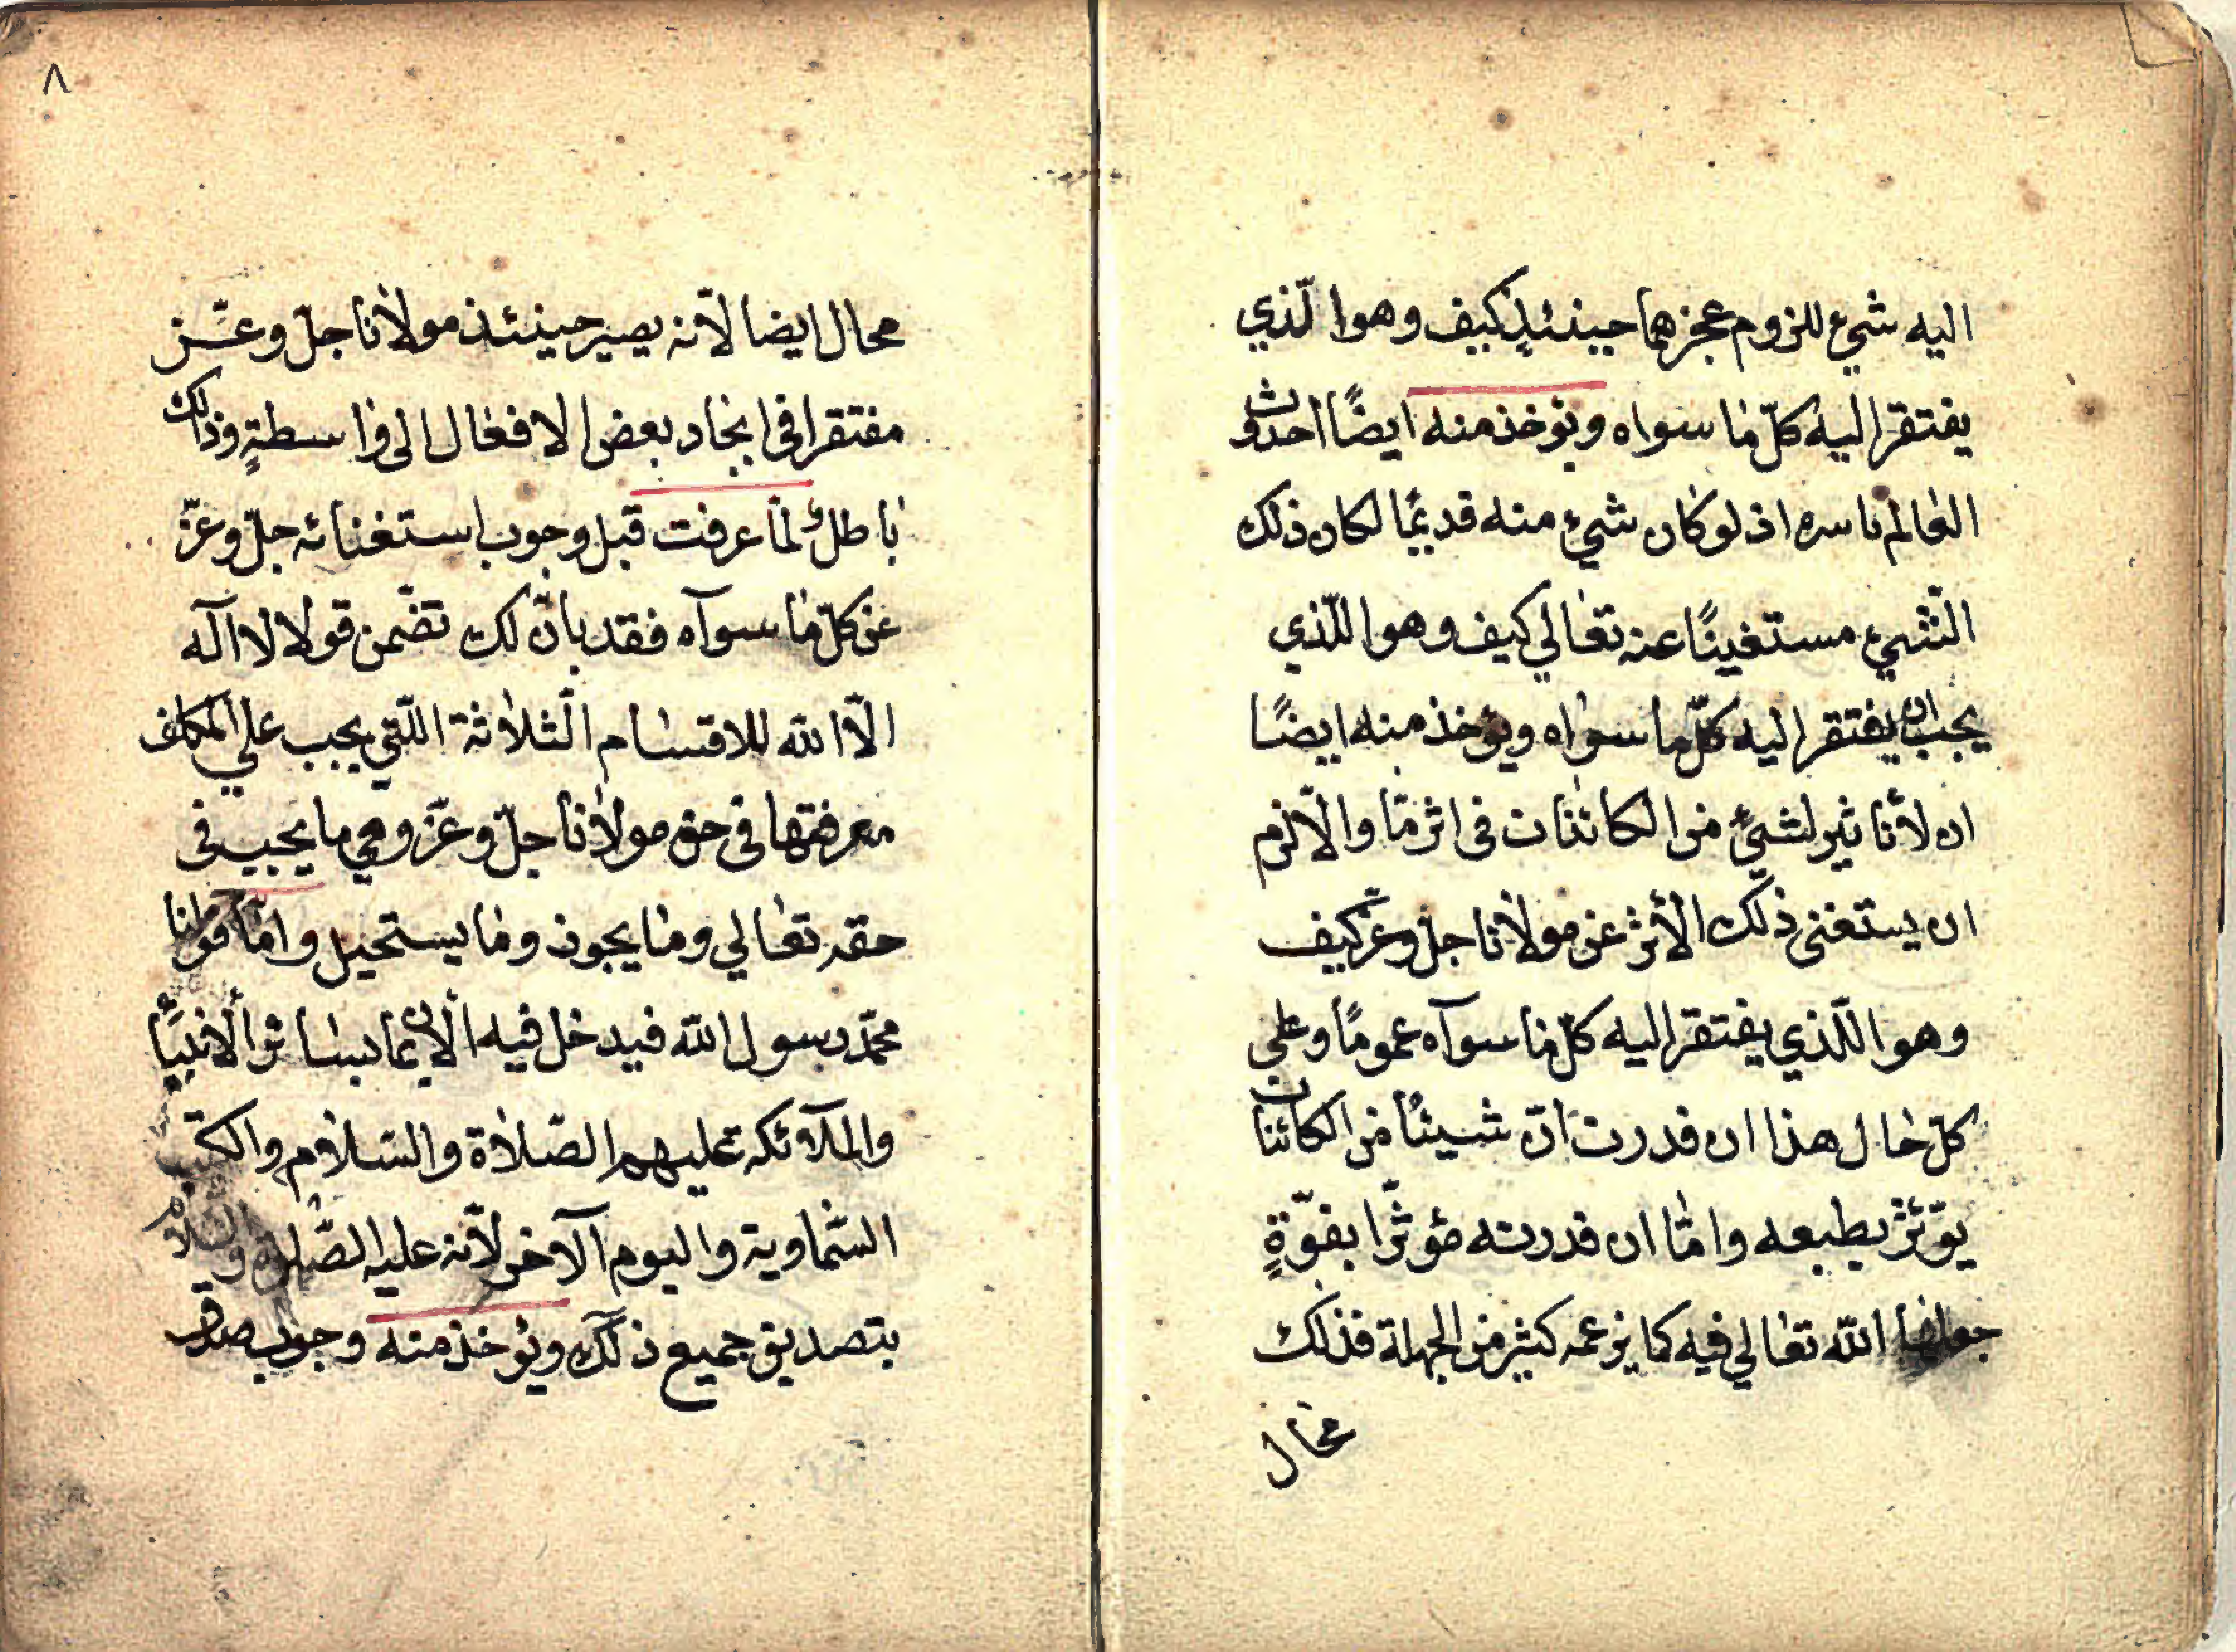 اليه شيئ للزوم عجزهما حينئذٍ كيف وهوا لّذي
يفتقر اليه كلّ ما سواه ويؤخذ منه ايضًا احدوث
العالم باسره اذ لو كان شيئ منه قديمًا لكان ذلك
الّشيئ مستغينًا عنه تعالي كيف وهوا اللّذي
يجب ان يفتقر اليه كلّ ما سواه ويؤخذ منه ايضًا
ان لاتأثير لشيئٍ من الكائنات في اثر مّا والّا لزم
ان يستغني ذلك الأثر عن مولانا جلّ وعزّ كيف
وهوا اللّذي يفتقر اليه كلّ ما سوآه عمومًا وعلي
كلّ حال هذا ان قدرت انّ شيئًا من الكائنات
يؤثّر بطبعه وامّا ان قدرته مؤثّرا بقوّةٍ
جعلها اللّه تعالي فيه كما يزعمه كثير من الجهلة فذلك
محال
٨
محال ايضا لأنّه يصير حينئذ مولانا جلّ وعّز
مفتقرا في ايجاد بعض الافعال الى واسطةٍ وذلك
باطل لما عرفت قبل وجوب استغنائه جلّ وعزّ
عن كلّ ما سوآه فقد بانّ لك تضّمن قولا لا اله
الّا اللّه للاقسام الّثلاثة اللّتي يجب علي المكلف
معرفتها في حق مولانا جلّ وعزّ وهي ما يجب في
حقه تعالي وما يجوز وما يستحيل وامّا قولنا
محمّد رسول اللّه فيدخل فيه الايمان بسائر الأنبيأ
والملآئكه عليهم الصّلاة والسّلام والكتب
السّماوية واليوم الآخر لأنّه عليه الصّلوة والسلام
بتصديق جميع ذلك ويؤخذ منه وجوب صدق